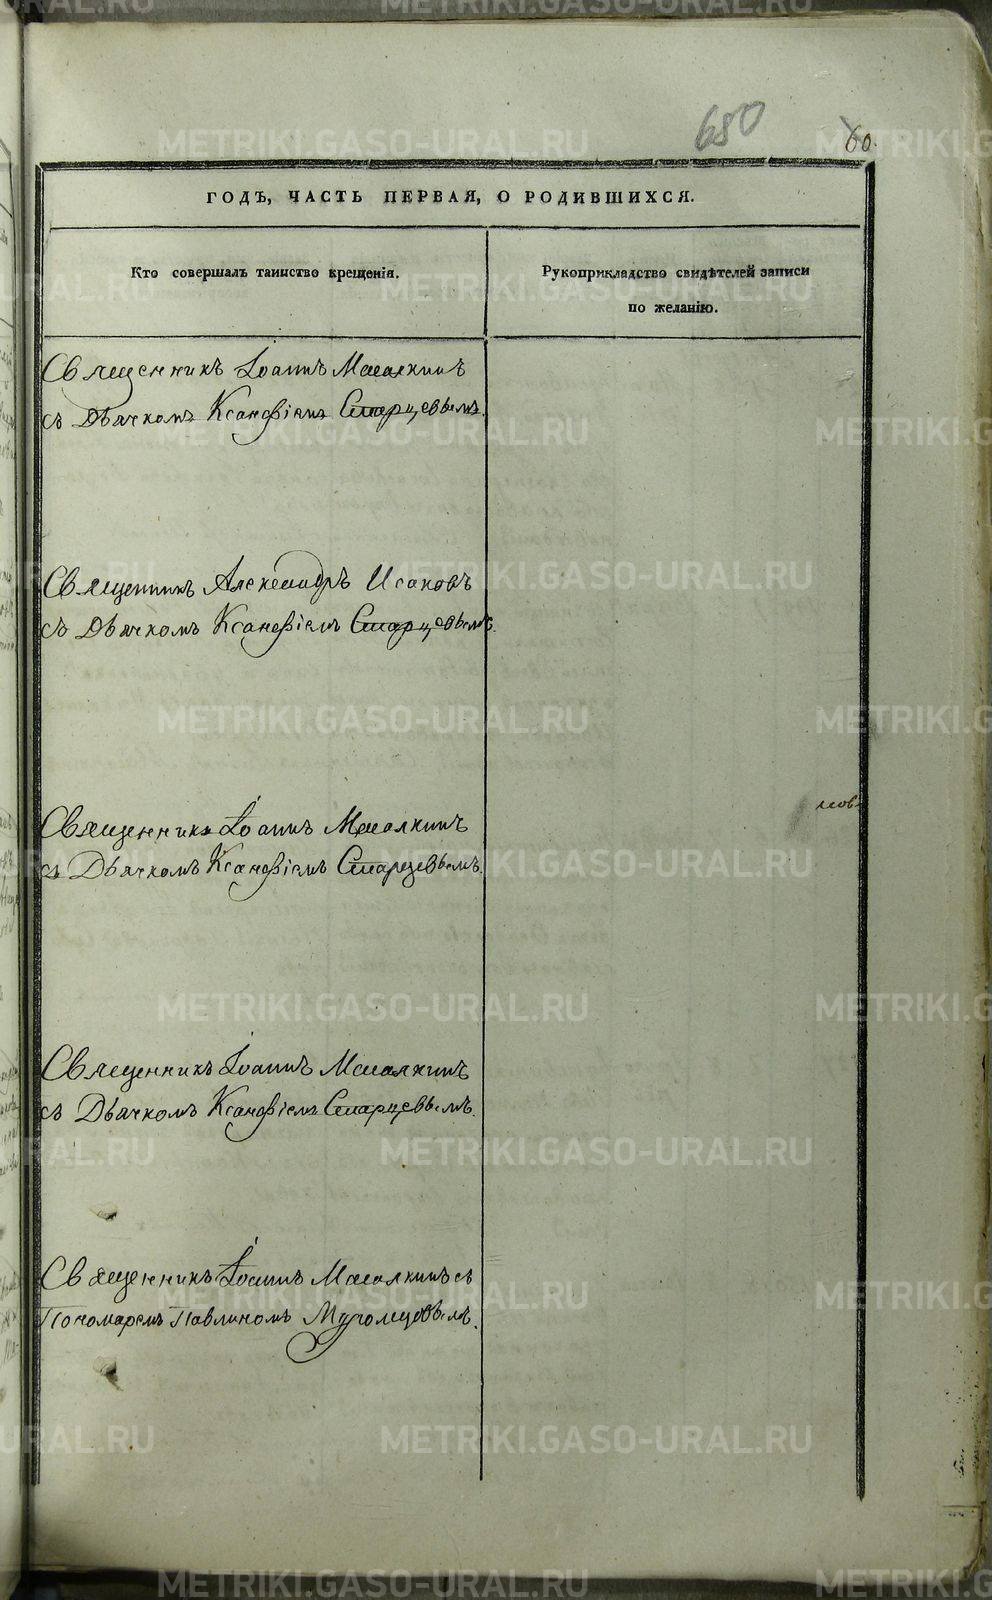 680
60.
ГОДЪ, ЧАСТЬ ПЕРВАЯ, О РОДИВШИХСЯ.
Кто совершалъ таинство крещенія.
Рукоприкладство свидѣтелей записи
по желанію.
Священникъ Іоаннъ Масалкинъ
съ Дьячкомъ Ксанѳіемъ Старцевымъ.
Священникъ Александръ Исаковъ
съ Дьячкомъ Ксанѳіемъ Старцевымъ.
Священникъ Іоаннъ Масалкинъ
съ Дьячкомъ Ксанѳіемъ Старцевымъ.
Священникъ Іоаннъ Масалкинъ
съ Дьячкомъ Ксанѳіемъ Старцевымъ.
Священникъ Іоаннъ Масалкинъ съ
Пономаремъ Павлиномъ
METRIKI.GASO-URAL.RU